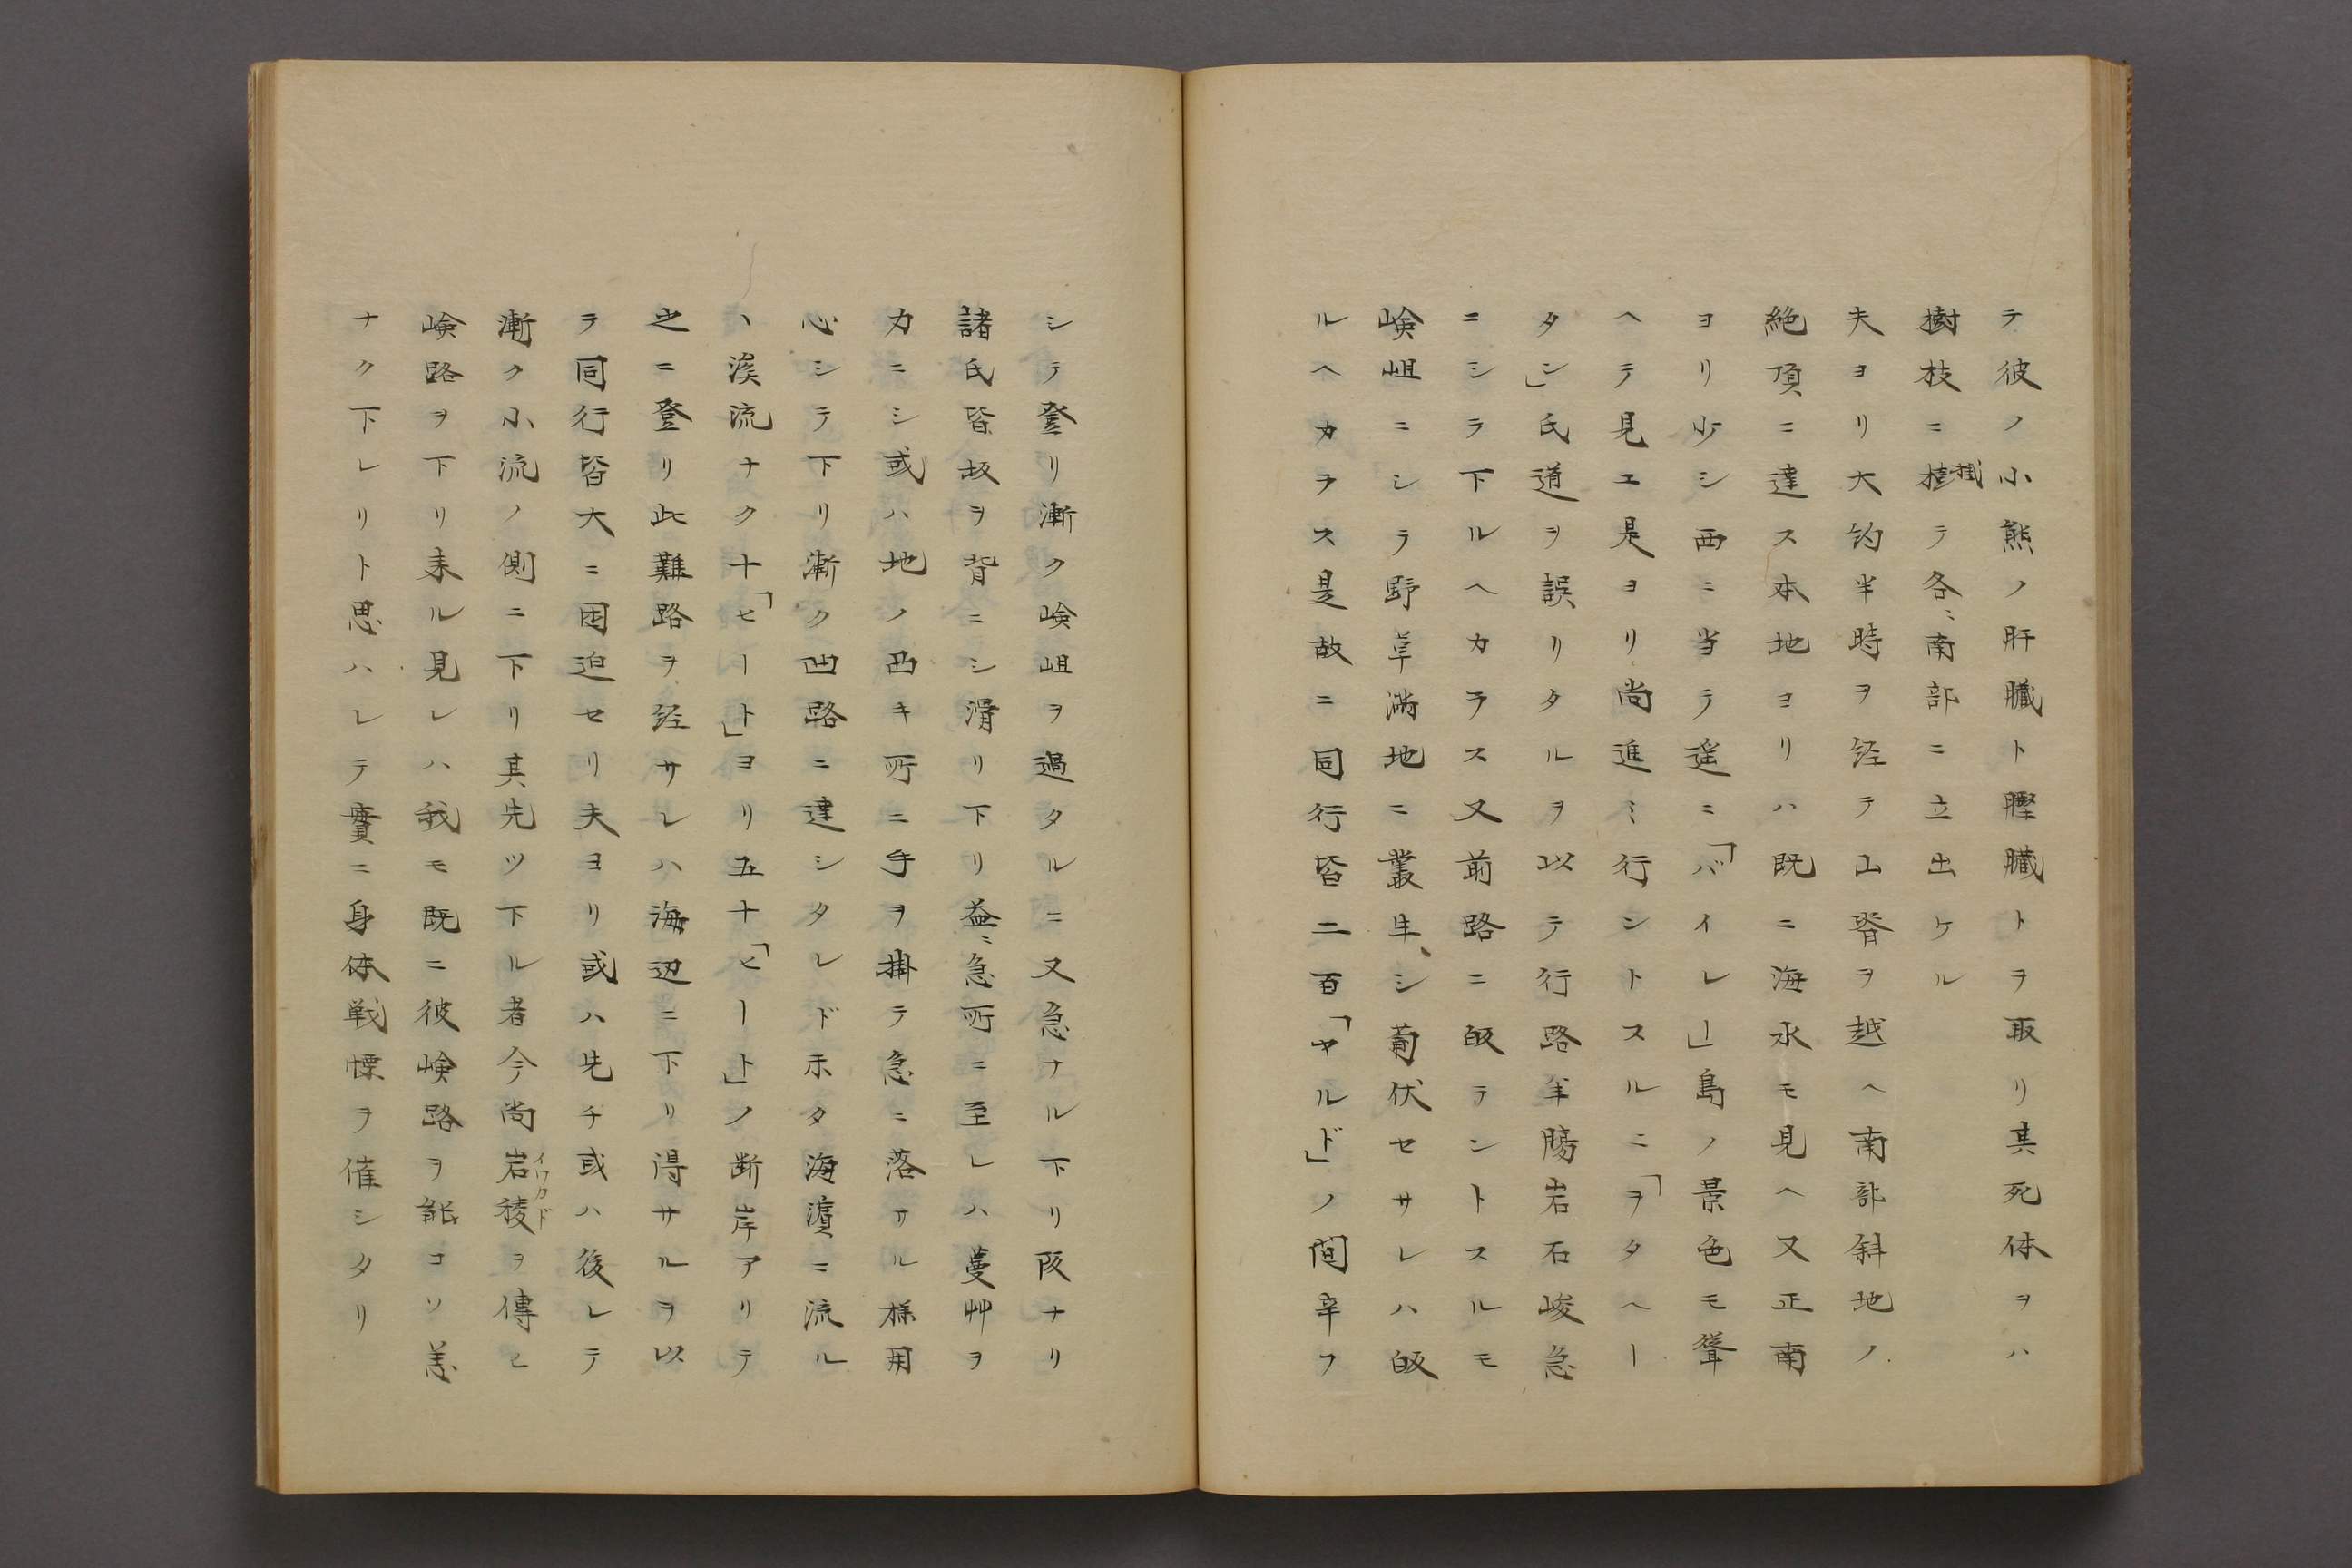 テ彼ノ小熊ノ肝臓ト膽臓トヲ取リ其死体ヲハ
樹枝ニ掛テ各〻南部ニ立出ケル
夫ヨリ大約半時ヲ経テ山脊ヲ越ヘ南部斜地ノ
絶頂ニ達ス本地ヨリハ既ニ海水モ見ヘ又正南
ヨリ少シ西ニ当テ遥ニ「バイレー」島ノ景色モ聳
ヘテ見エ是ヨリ尚進ミ行ントスルニ「ヲタヘー
タン」氏道ヲ誤リタルヲ以テ行路羊膓岩石峻急
ニシテ下ルヘカラス又前路ニ皈テントスルモ
嶮岨ニシテ野草満地ニ叢生シ葡伏セサレハ皈
ルヘカラス是故ニ同行皆二百「ヤルド」ノ間辛フ
シテ登リ漸ク嶮岨ヲ過タルニ又急ナル下リ阪ナリ
諸氏皆坂ヲ背ニシ滑リ下リ益〻急所ニ至レハ蔓艸ヲ
力ニシ或ハ地ノ凸キ所ニ手ヲ掛テ急ニ落サル様用
心シテ下リ漸ク凹路ニ達シタレド未タ海濱ニ流ル
ヽ渓流ナク十「ヒート」ヨリ五十「ヒート」ノ断岸アリテ
之ニ登リ此難路ヲ経サレハ海辺ニ下リ得サルヲ以
テ同行皆大ニ困迫セリ夫ヨリ或ハ先チ或ハ後レテ
漸ク小流ノ側ニ下リ其先ツ下ル者今尚岩稜イワカドヲ傳ヒ
嶮路ヲ下リ来ル見レハ我モ既ニ彼嶮路ヲ能コソ恙
ナク下レリト思ハレテ實ニ身体戦慄ヲ催シタリ